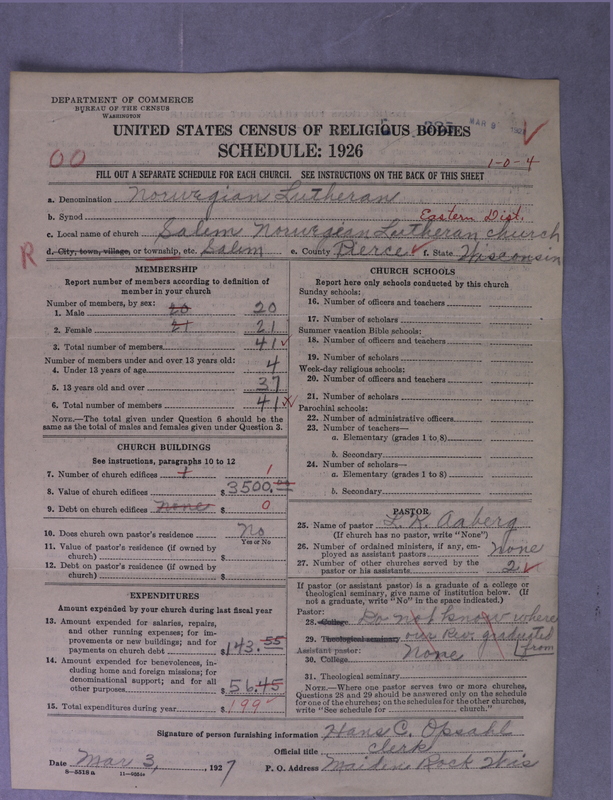 DEPARTMENT OF COMMERCE
BUREAU OF THE CENSUS
WASHINGTON
MAR 9 1927
UNITED STATES CENSUS OF RELIGIOUS BODIES
SCHEDULE: 1926
00
1-0-4
FILL OUT A SEPARATE SCHEDULE FOR EACH CHURCH. SEE INSTRUCTIONS ON THE BACK OF THIS SHEET
a. Denomination Norwegian Lutheran
b. Synod Eastern Dist.
c. Local name of church Salem Norwegian Lutheran church
R
d. City, town, village, or township, etc. Salem e. County Pierce f. State Wisconsin
MEMBERSHIP
Report number of members according to definition of
member in your church
Number of members, by sex:
1. Male 20 20
2. Female 21 21
3. Total number of members 41
Number of members under and over 13 years old:
4. Under 13 years of age 4
5. 13 years old and over 37
6. Total number of members 41
NOTE.—The total given under Question 6 should be the
same as the total of males and females given under Question 3.
CHURCH BUILDINGS
See instructions, paragraphs 10 to 12
7. Number of church edifices 1 1
8. Value of church edifices $ 3500.
9. Debt on church edifices none $ 0
10. Does church own pastor's residence No
Yes or No
11. Value of pastor's residence (if owned by
church) $
12. Debt on pastor's residence (if owned by
church) $
EXPENDITURES
Amount expended by your church during last fiscal year
13. Amount expended for salaries, repairs,
and other running expenses; for im-
provements or new buildings; and for
payments on church debt $ 143.55
14. Amount expended for benevolences, in-
cluding home and foreign missions; for
denominational support; and for all
other purposes $ 56.45
15. Total expenditures during year $ 199
CHURCH SCHOOLS
Report here only schools conducted by this church
Sunday schools:
16. Number of officers and teachers
17. Number of scholars
Summer vacation Bible schools:
18. Number of officers and teachers
19. Number of scholars
Week-day religious schools:
20. Number of officers and teachers
21. Number of scholars
Parochial schools:
22. Number of administrative officers
23. Number of teachers—
a. Elementary (grades 1 to 8)
b. Secondary
24. Number of scholars—
a. Elementary (grades 1 to 8)
b. Secondary
PASTOR
25. Name of pastor L. K. Aaberg
(If church has no pastor, write "None")
26. Number of ordained ministers, if any, em-
ployed as assistant pastors None
27. Number of other churches served by the
pastor or his assistants 2
If pastor (or assistant pastor) is a graduate of a college or
theological seminary, give name of institution below. (If
not a graduate, write "No" in the space indicated.)
Pastor:
28. College Do not know where
29. Theological seminary our Rev. graduated
from
Assistant pastor:
30. College None
31. Theological seminary
NOTE.—Where one pastor serves two or more churches,
Questions 28 and 29 should be answered only on the schedule
for one of the churches; on the schedules for the other churches,
write "See schedule for church."
Signature of person furnishing information Hans C. Opsahl
Official title clerk
Date Mar 3, 1927
P. O. Address Maiden Rock Wis
8—5518a